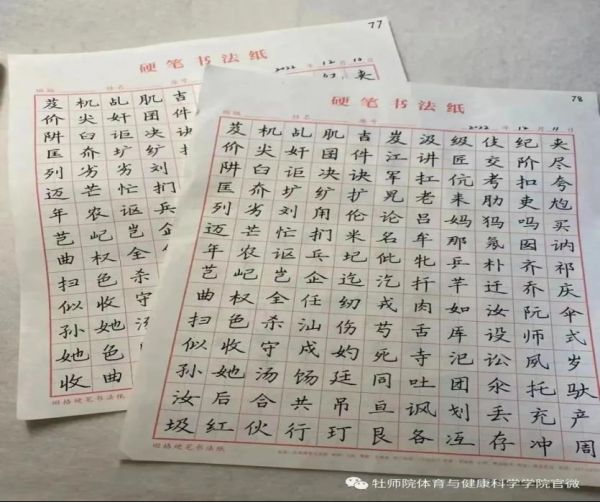 77
硬笔书法纸
2022 年 12 月 10 日
芨 机 乱 肌 吉
价 尖 奸 囡 件
阱 臼 讵 决 诀
匡 乔 圹 纩 扩
列 劣 刘
迈 芒 忙 扪
年 农 讴 兵
芑 屺 岂 企
曲 权 全
扫 色 杀
似 收 守
孙 她 汤
她 色
收 曲
田格硬笔书法纸
78
硬笔书法纸
2022 年 12 月 11 日
芨 机 乱 肌 吉 岌 汲 级 伎 纪 夹
价 尖 奸 囡 件 江 讲 匠 交 阶 尽
阱 臼 讵 决 诀 军 扛 伉 考 扣 夸
匡 乔 圹 纩 扩 晃 老 耒 肋 吏 尥
列 劣 刘 甪 伦 论 吕 妈 犸 吗 买
迈 芒 忙 扪 米 名 牟 那 氖 囡 讷
年 农 讴 兵 圮 仳 牝 乒 朴 齐 祁
芑 屺 岂 企 迄 汔 扦 芊 迁 乔 庆
曲 权 全 任 纫 戎 肉 如 汝 阮 伞
扫 色 杀 汕 伤 芍 舌 厍 设 师 式
似 收 守 戍 妁 死 寺 汜 讼 夙 岁
孙 她 汤 饧 廷 同 吐 团 氽 托 驮
汝 后 合 共 吊 亘 讽 划 丢 充 产
圾 红 伙 行 玎 艮 各 冱 存 冲 周
田格硬笔书法纸
牡师院体育与健康科学学院官微